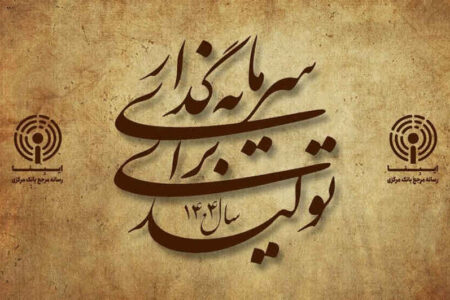 سرمایه‌گذاری
برای
تولید
سال ۱۴۰۴
ایبنا
رسانه مرجع بانک مرکزی
ایبنا
رسانه مرجع بانک مرکزی